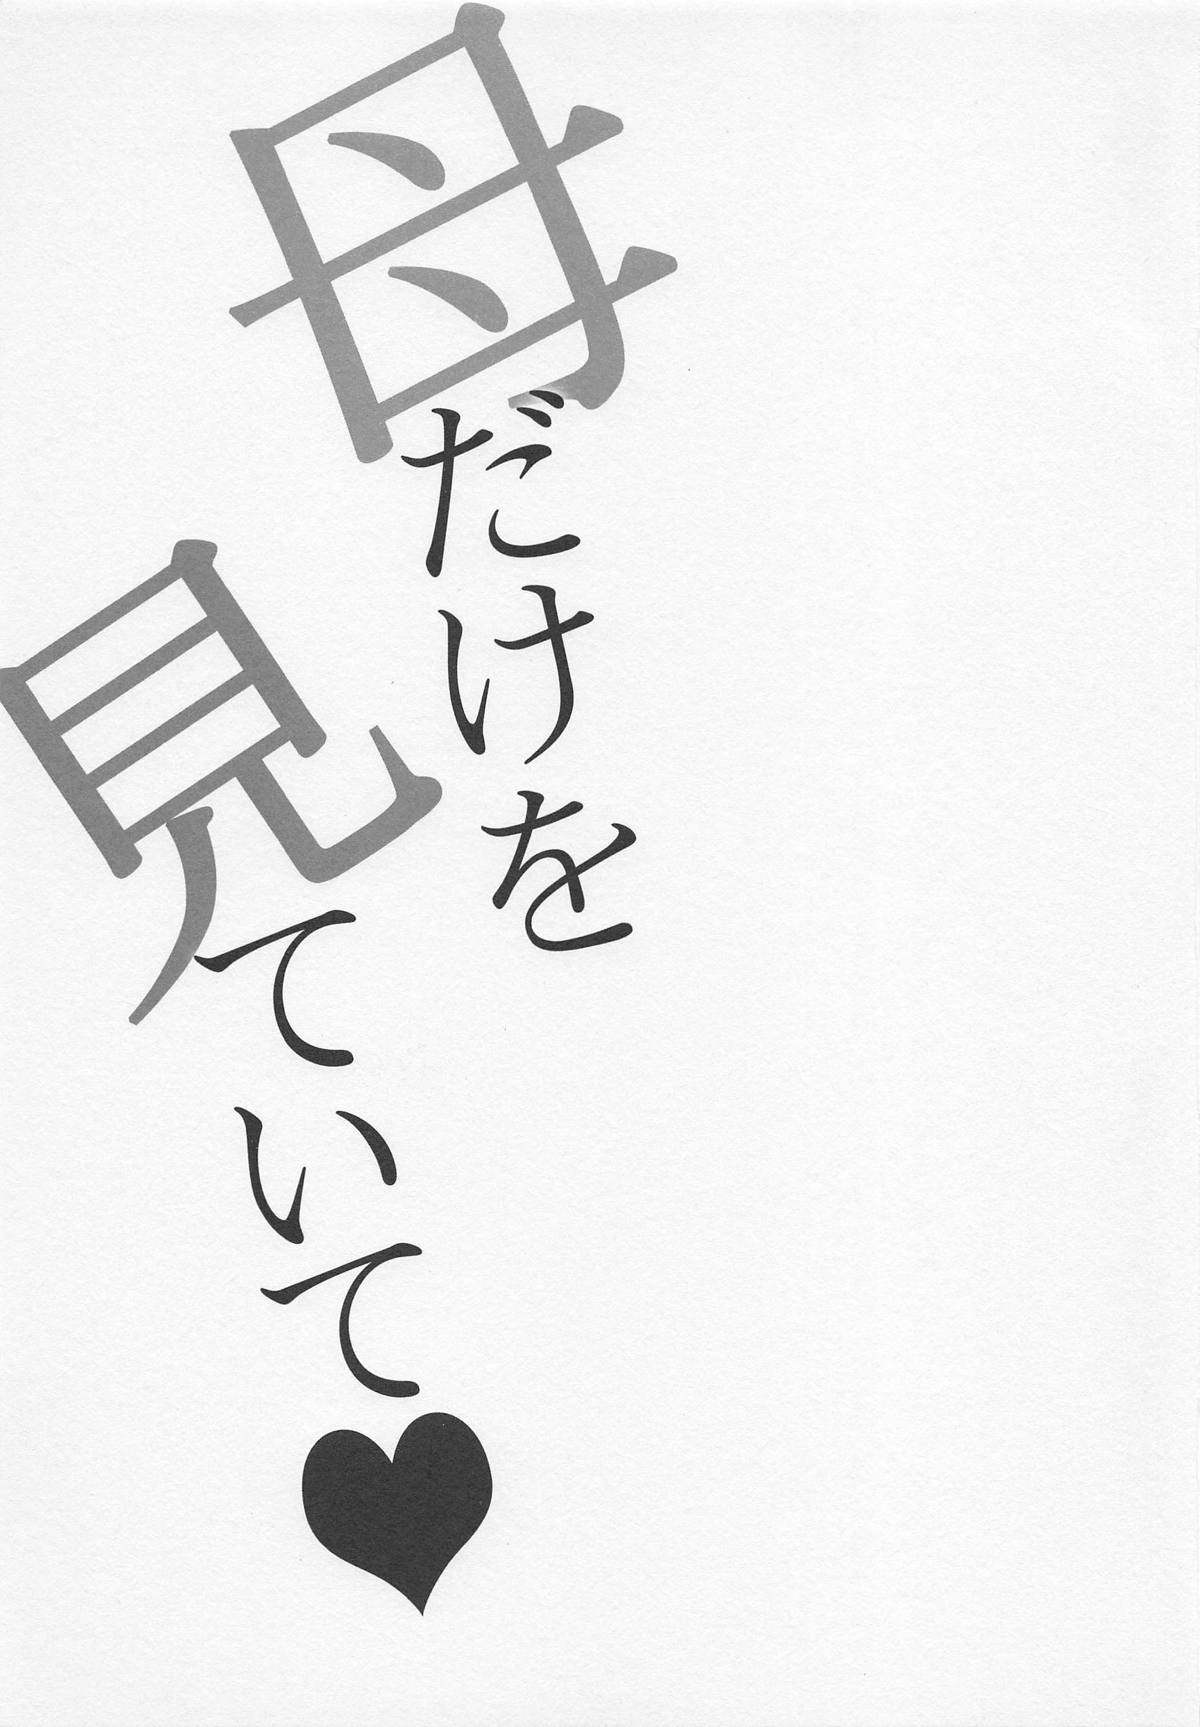 母だけを
見ていて♥